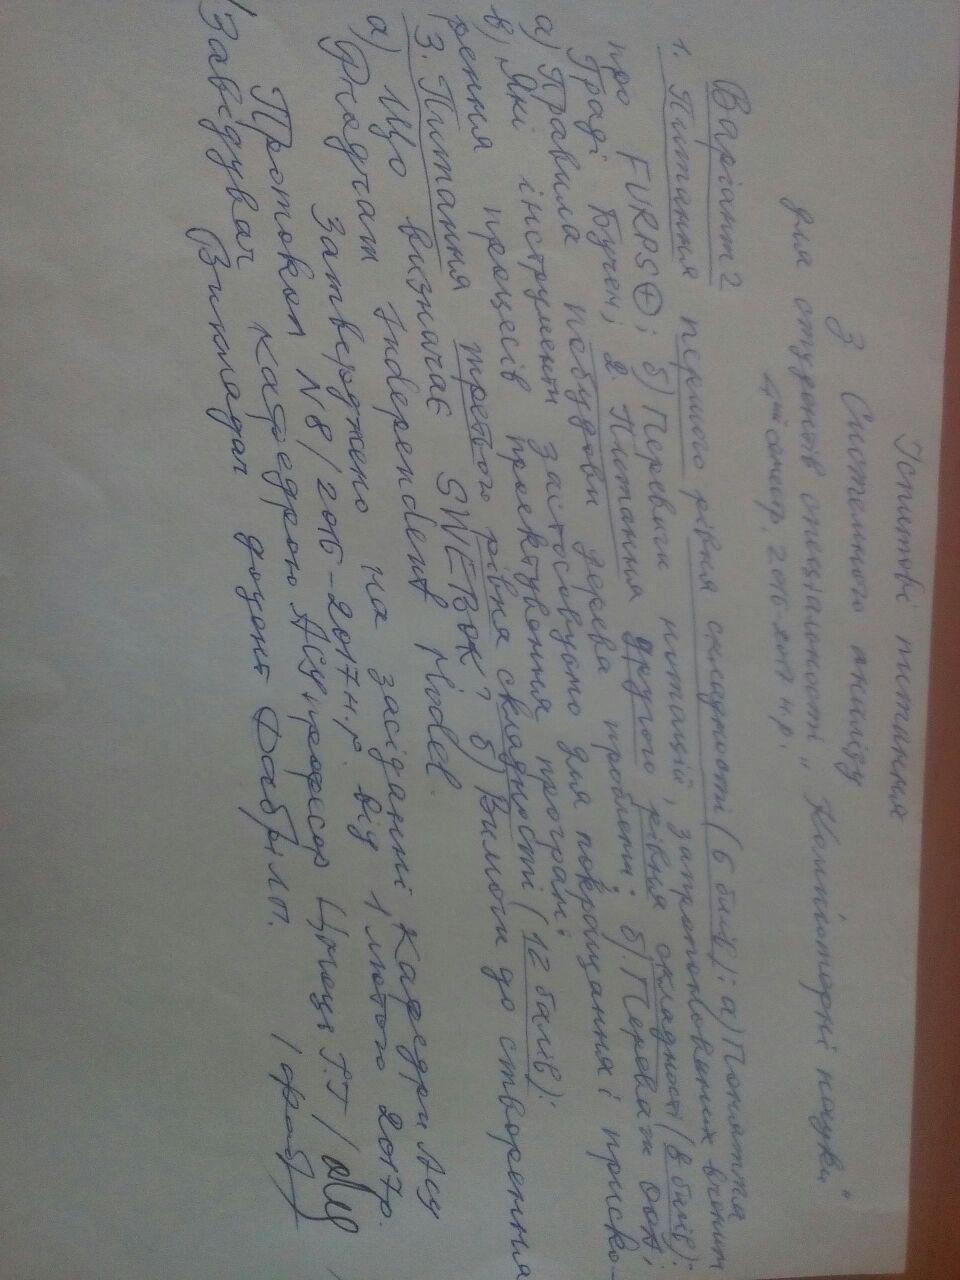 Іспитові питання
з Системного аналізу
для студентів спеціальності „Комп'ютерні науки"
4ий семестр, 2016-2017 н.р.
Варіант 2
1. Питання першого рівня складності (6 балів): а) Поняття
про FURPS⊕; б) Переваги нотацій, запропонованих вченим
Граді Бучем; 2. Питання другого рівня складності (8 балів):
а) Правила побудови дерева проблеми; б) Переваги ООА;
в) Які інструменти застосовуємо для покращання і приско-
рення процесів проектування програм.
3. Питання третього рівня складності (12 балів):
а) Що визначає SWEBOK? б) Вимоги до створення
Independent Model.
Затверджено на засіданні кафедри АСУ
Протокол N8/2016-2017 н.р. від 1 лютого 2017р.
Завідувач кафедрою АСУ професор Г.Г /
Викладач доцент